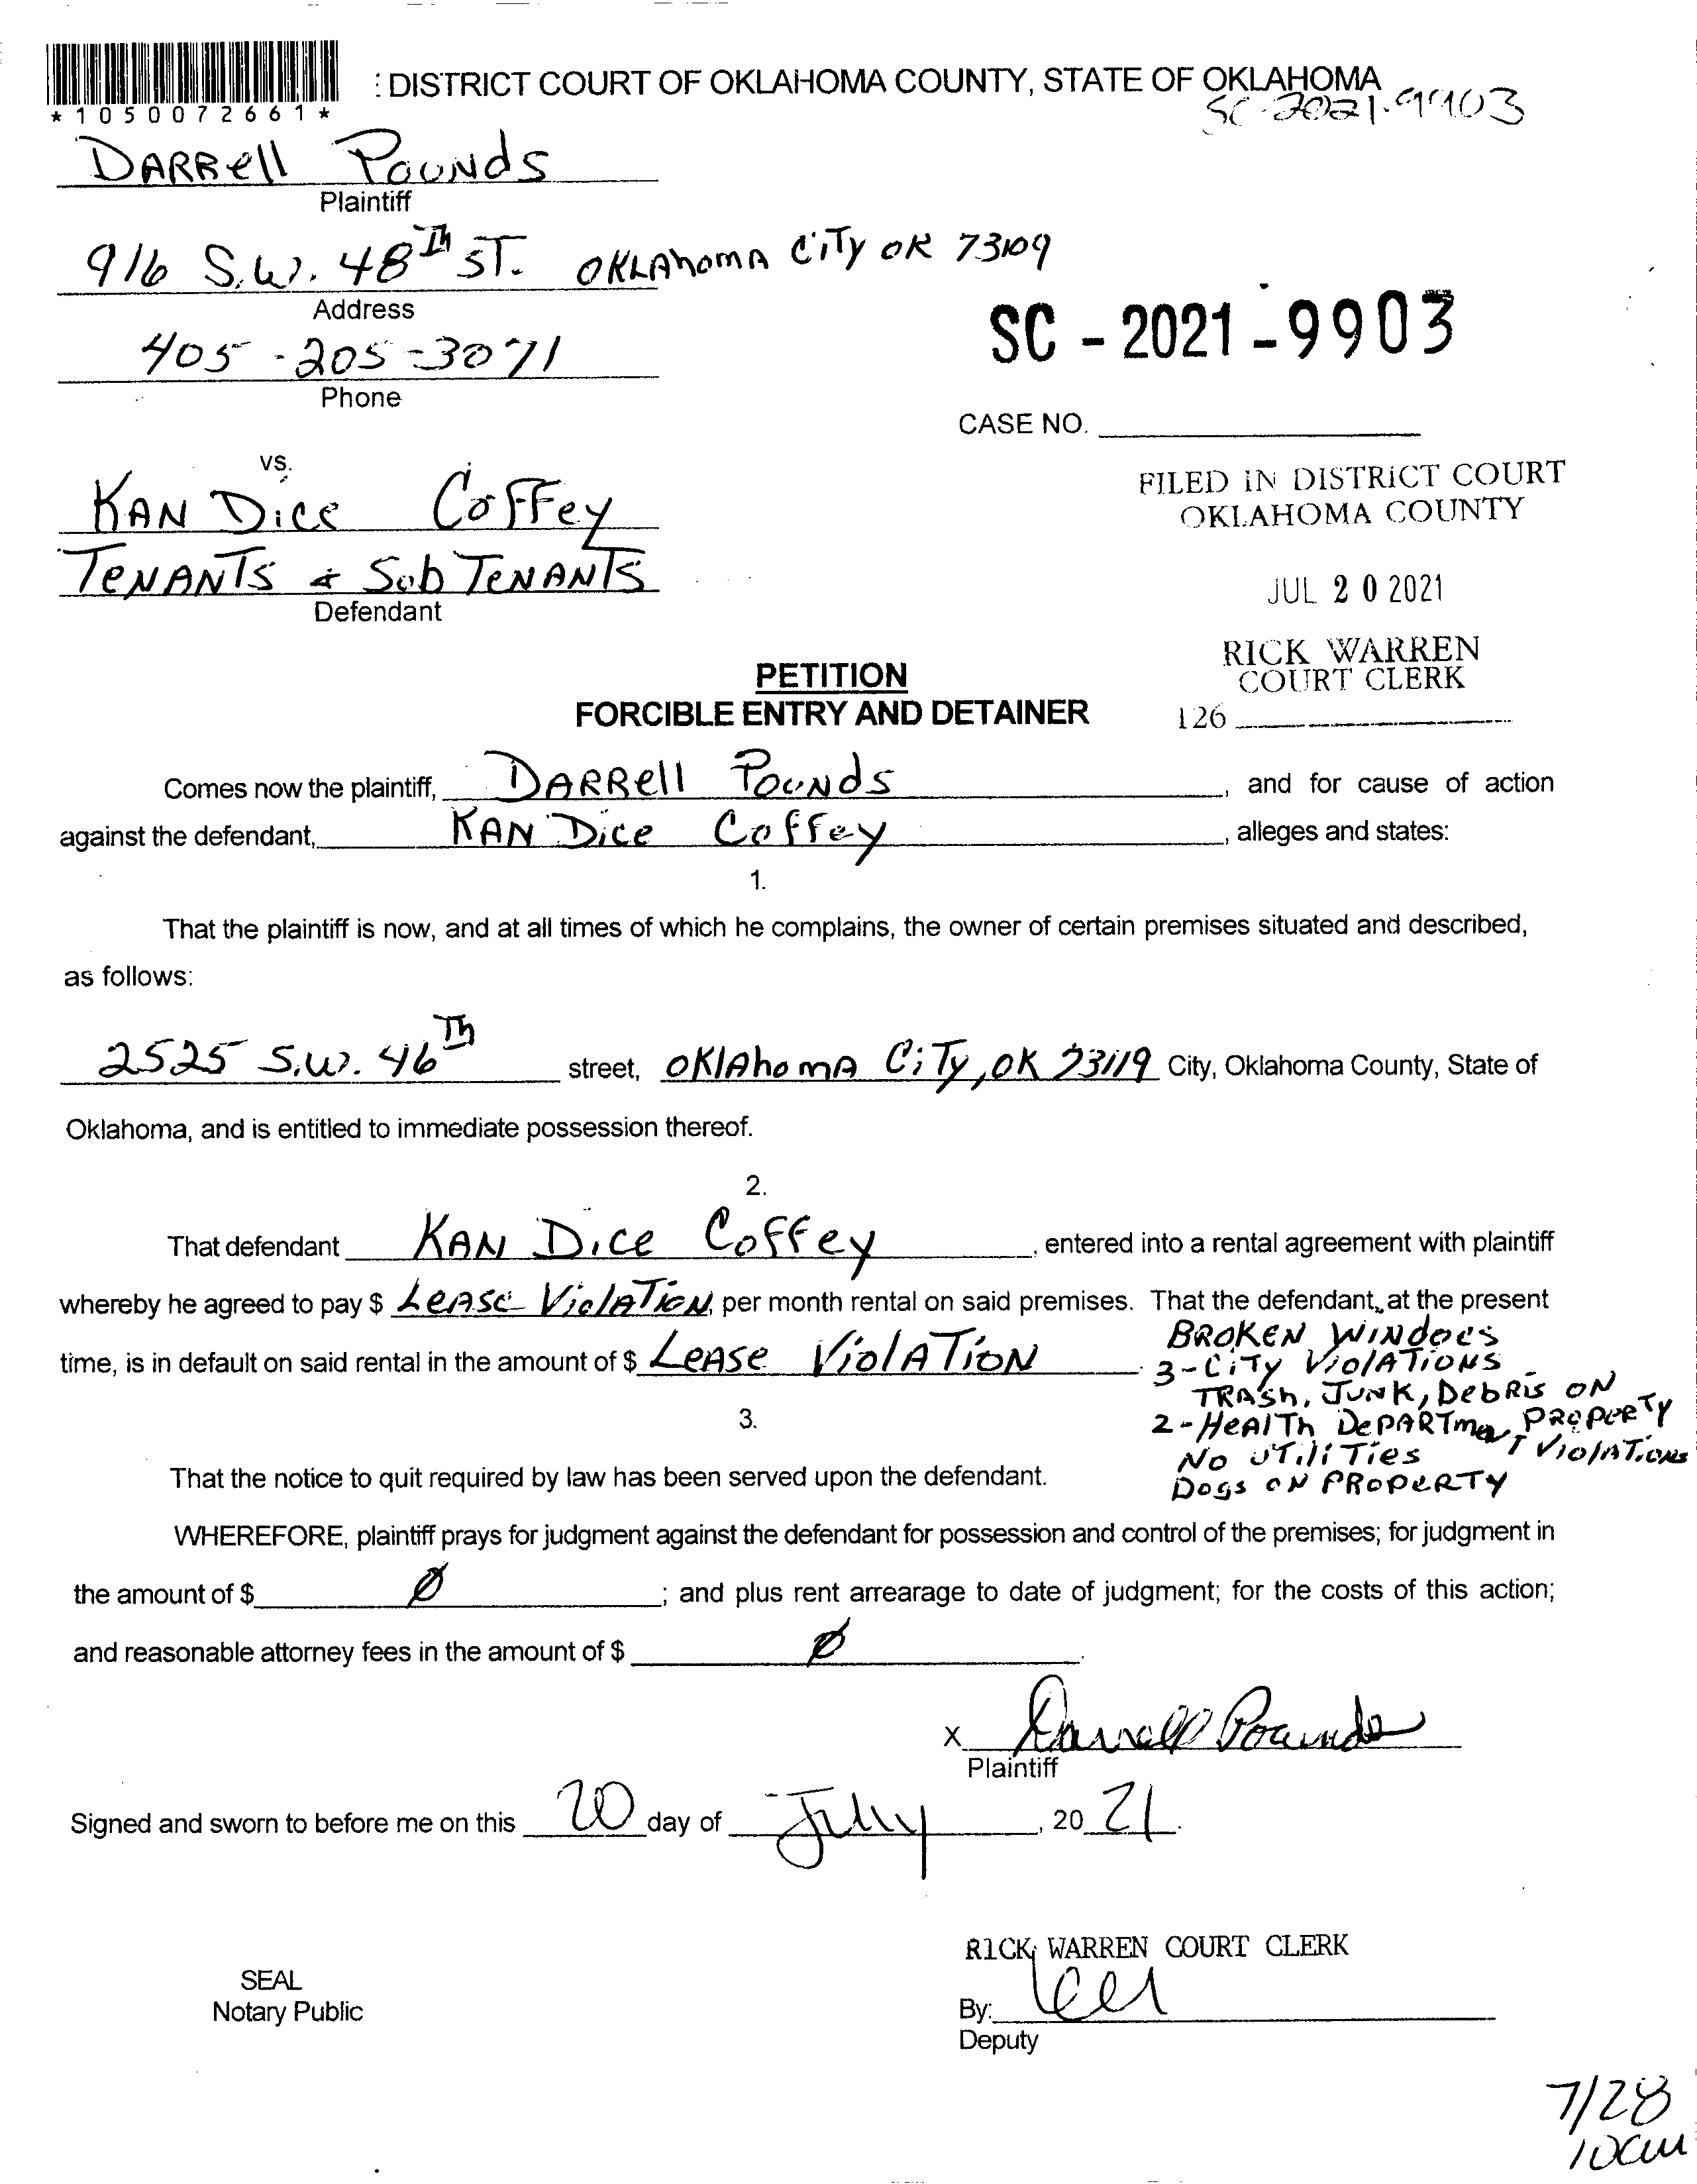 : DISTRICT COURT OF OKLAHOMA COUNTY, STATE OF OKLAHOMA
*1050072661*
SC-2021-9903
DARRell Pounds
Plaintiff
916 S.W. 48Th ST. OKLAhomA CiTy OK 73109
Address
405-205-3071
Phone
SC-2021-9903
CASE NO.
vs.
KAN Dice Coffey
TeNANTS & Sub TeNANTS
Defendant
FILED IN DISTRICT COURT
OKLAHOMA COUNTY
JUL 20 2021
RICK WARREN
COURT CLERK
126
PETITION
FORCIBLE ENTRY AND DETAINER
Comes now the plaintiff, DARRell Pounds, and for cause of action
against the defendant, KAN Dice Coffey, alleges and states:
1.
That the plaintiff is now, and at all times of which he complains, the owner of certain premises situated and described,
as follows:
2525 S.W. 46Th street, OKlAhomA CiTy, OK 73119 City, Oklahoma County, State of
Oklahoma, and is entitled to immediate possession thereof.
2.
That defendant KAN Dice Coffey, entered into a rental agreement with plaintiff
whereby he agreed to pay $ LeASe ViolATioN, per month rental on said premises. That the defendant, at the present
time, is in default on said rental in the amount of $ LeASe ViolATioN.
BROKEN WiNdoes
3-CiTy ViolATioNS
TRASh, JUNK, DebRis ON PRoPeRTy
2-HeAlTh DePARTmenT ViolATioNs
No UTiliTies
Dogs ON PROPeRTY
3.
That the notice to quit required by law has been served upon the defendant.
WHEREFORE, plaintiff prays for judgment against the defendant for possession and control of the premises; for judgment in
the amount of $ Ø; and plus rent arrearage to date of judgment; for the costs of this action;
and reasonable attorney fees in the amount of $ Ø.
X Darrell Pounds
Plaintiff
Signed and sworn to before me on this 20 day of July, 20 21.
RICK WARREN COURT CLERK
SEAL
Notary Public
By:
Deputy
7/28
10am